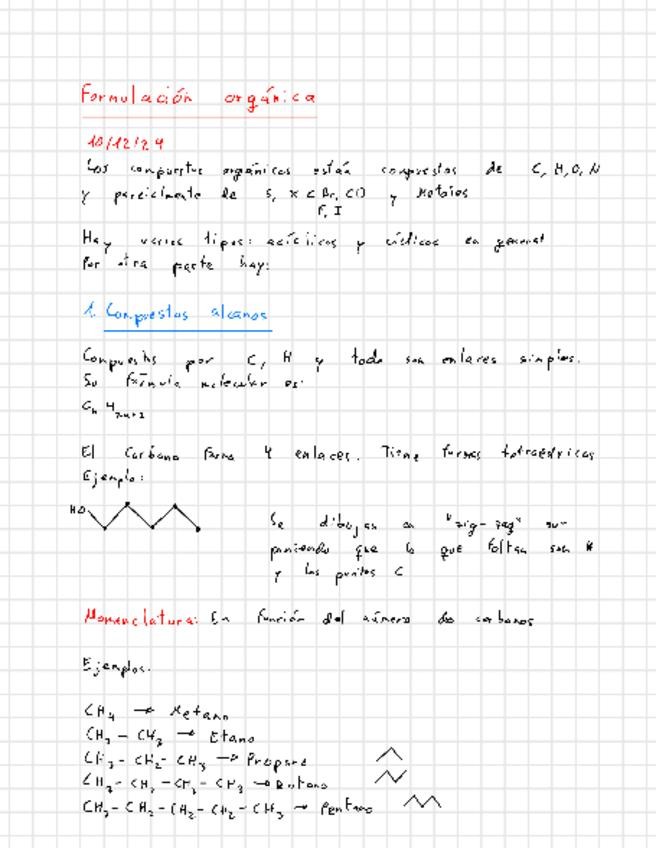 Formulación orgánica
10/12/24
Los compuestos orgánicos están compuestos de C, H, O, N
y parcialmente de S, X < Br, Cl y Metales
F, I
Hay varios tipos: acíclicos y cíclicos en general
Por otra parte hay:
1. Compuestos alcanos
Compuestos por C, H y todo son enlaces simples.
Su fórmula molecular es:
CnH2n+2
El Carbono forma 4 enlaces. Tiene formas tetraédricas
Ejemplo:
HO
Se dibujan en "zig-zag" su-
poniendo que lo que faltan son H
y los puntos C
Nomenclatura: En función del número de carbonos
Ejemplos:
CH4 → Metano
CH3 - CH3 → Etano
CH3 - CH2 - CH3 → Propano
CH3 - CH2 - CH2 - CH3 → Butano
CH3 - CH2 - CH2 - CH2 - CH3 → Pentano